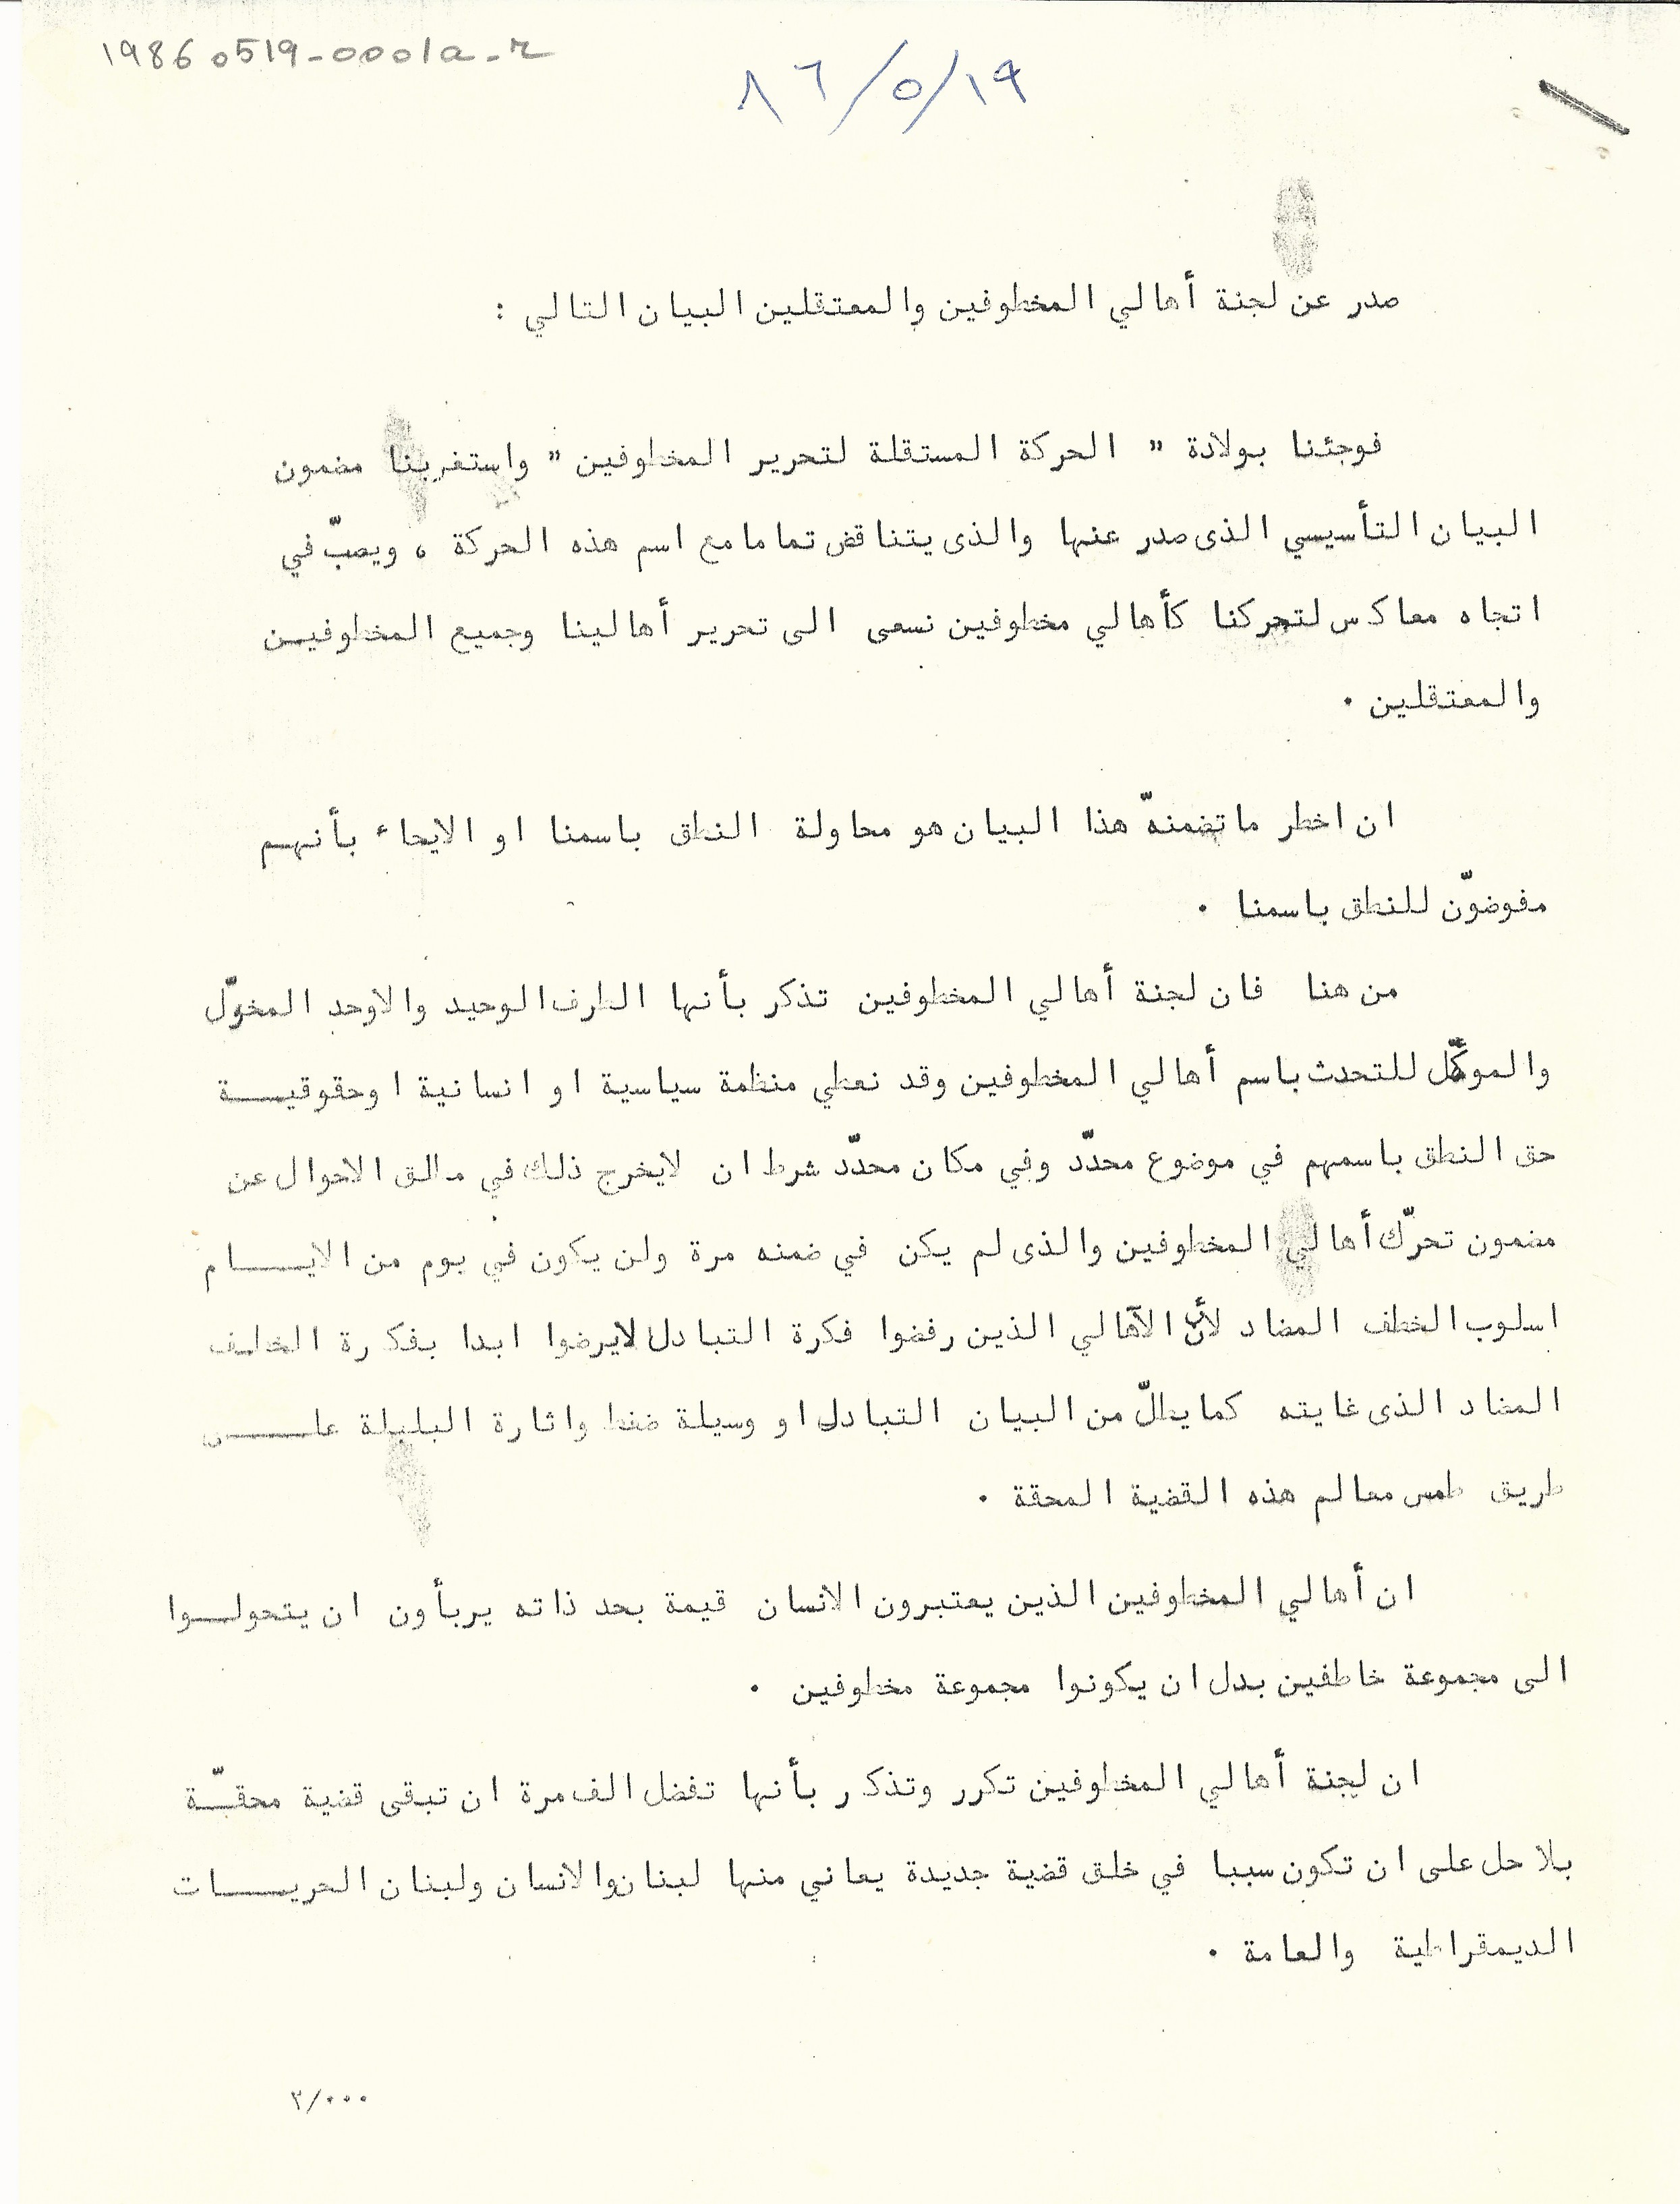 19860519-0001a-r
٨٦/٥/١٩
صدر عن لجنة أهالي المخطوفين والمعتقلين البيان التالي :
فوجئنا بولادة " الحركة المستقلة لتحرير المخطوفين " واستغربنا مضمون
البيان التأسيسي الذى صدر عنها والذى يتناقض تماما مع اسم هذه الحركة ، ويصبّ في
اتجاه معاكس لتحركنا كأهالي مخطوفين نسعى الى تحرير أهالينا وجميع المخطوفيـن
والمعتقلين ٠
ان اخطر ماتضمنهّ هذا البيان هو محاولة النطق باسمنا او الايحاء بأنهـم
مفوضوّن للنطق باسمنا ٠
من هنا فان لجنة أهالي المخطوفين تذكر بأنها الطرف الوحيد والاوحد المخوّل
والموكّل للتحدث باسم أهالي المخطوفين وقد نعطي منظمة سياسية او انسانية اوحقوقيـــة
حق النطق باسمهم في موضوع محدّد وفي مكان محدّد شرط ان لايخرج ذلك في مالق الاحوال عن
مضمون تحرّك أهالي المخطوفين والذى لم يكن في ضمنه مرة ولن يكون في يوم من الايـــام
اسلوب الخطف المضاد لأن الآهالي الذين رفضوا فكرة التبادل لايرضوا ابدا بفكرة الخطف
المضاد الذى غايته كما يطلّ من البيان التبادل او وسيلة ضغط واثارة البلبلة علـــى
طريق طمس معالم هذه القضية المحقة ٠
ان أهالي المخطوفين الذين يعتبرون الانسان قيمة بحد ذاته يربأون ان يتحولـــوا
الى مجموعة خاطفين بدل ان يكونوا مجموعة مخطوفين ٠
ان لجنة أهالي المخطوفين تكرر وتذكر بأنها تفضل الف مرة ان تبقى قضية محقـّـة
بلا حل على ان تكون سببا في خلق قضية جديدة يعاني منها لبنان والانسان ولبنان الحريـــات
الديمقراطية والعامة ٠
٢/٠٠٠